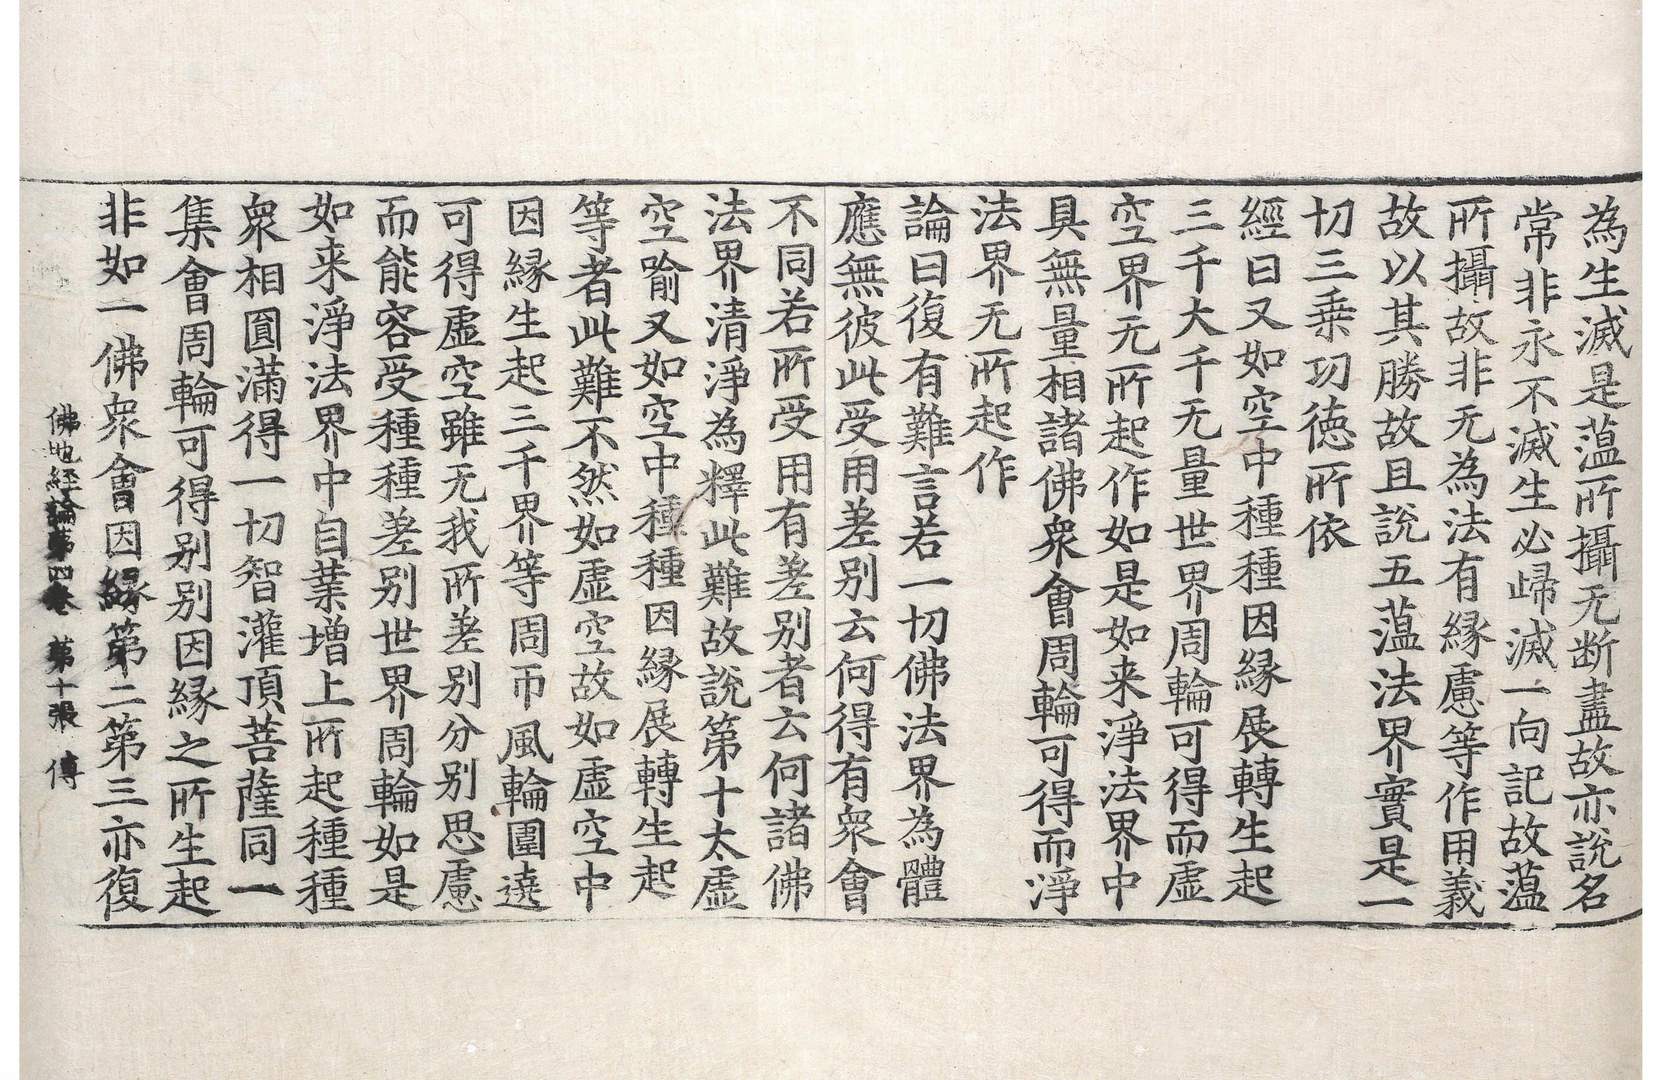 為生滅是薀所攝无断盡故亦說名
常非永不滅生必歸滅一向記故薀
所攝故非无為法有縁慮等作用義
故以其勝故且說五薀法界實是一
切三乗功徳所依
經曰又如空中種種因縁展轉生起
三千大千无量世界周輪可得而虛
空界无所起作如是如来淨法界中
具無量相諸佛衆會周輪可得而淨
法界无所起作
論曰復有難言若一切佛法界為體
應無彼此受用差别云何得有衆會
不同若所受用有差别者云何諸佛
法界清淨為釋此難故說第十太虛
空喻又如空中種種因縁展轉生起
等者此難不然如虛空故如虛空中
因縁生起三千界等周帀風輪圍遶
可得虛空雖无我所差别分别思慮
而能容受種種差别世界周輪如是
如来淨法界中自業增上所起種種
衆相圓滿得一切智灌頂菩薩同一
集會周輪可得别别因縁之所生起
非如一佛衆會因縁第二第三亦復
佛地經論第四卷 第十張 傅